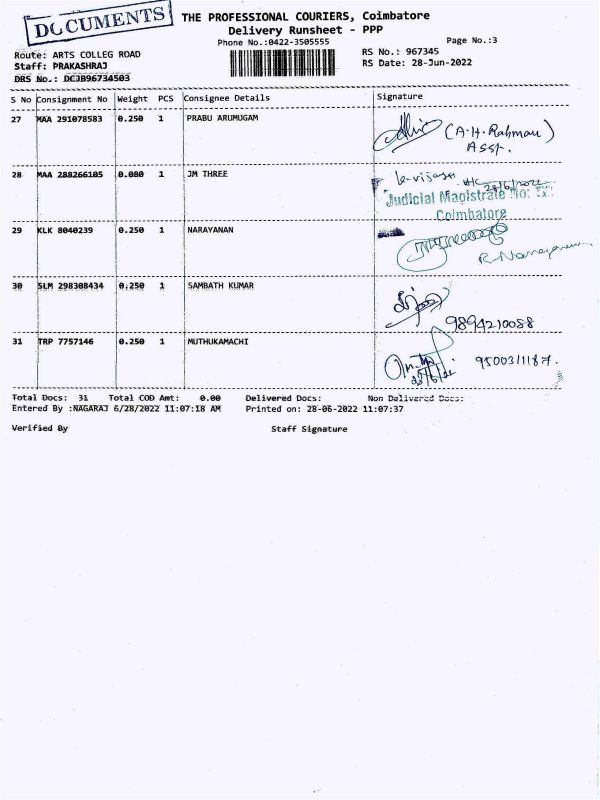 DOCUMENTS
THE PROFESSIONAL COURIERS, Coimbatore
Delivery Runsheet - PPP
Phone No.:0422-3505555
Page No.:3
Route: ARTS COLLEG ROAD
RS No.: 967345
Staff: PRAKASHRAJ
RS Date: 28-Jun-2022
DRS No.: DCJB96734503
S No Consignment No Weight PCS Consignee Details Signature
27 MAA 291078583 0.250 1 PRABU ARUMUGAM
(A.H. Rahman)
Asst.
28 MAA 288266105 0.080 1 JM THREE
Judicial Magistrate No: IV
Coimbatore
29 KLK 8040239 0.250 1 NARAYANAN
30 SLM 298308434 0.250 1 SAMBATH KUMAR
9894210088
31 TRP 7757146 0.250 1 MUTHUKAMACHI
9500311187.
Total Docs: 31 Total COD Amt: 0.00 Delivered Docs: Non Delivered Docs:
Entered By :NAGARAJ 6/28/2022 11:07:18 AM Printed on: 28-06-2022 11:07:37
Verified By Staff Signature